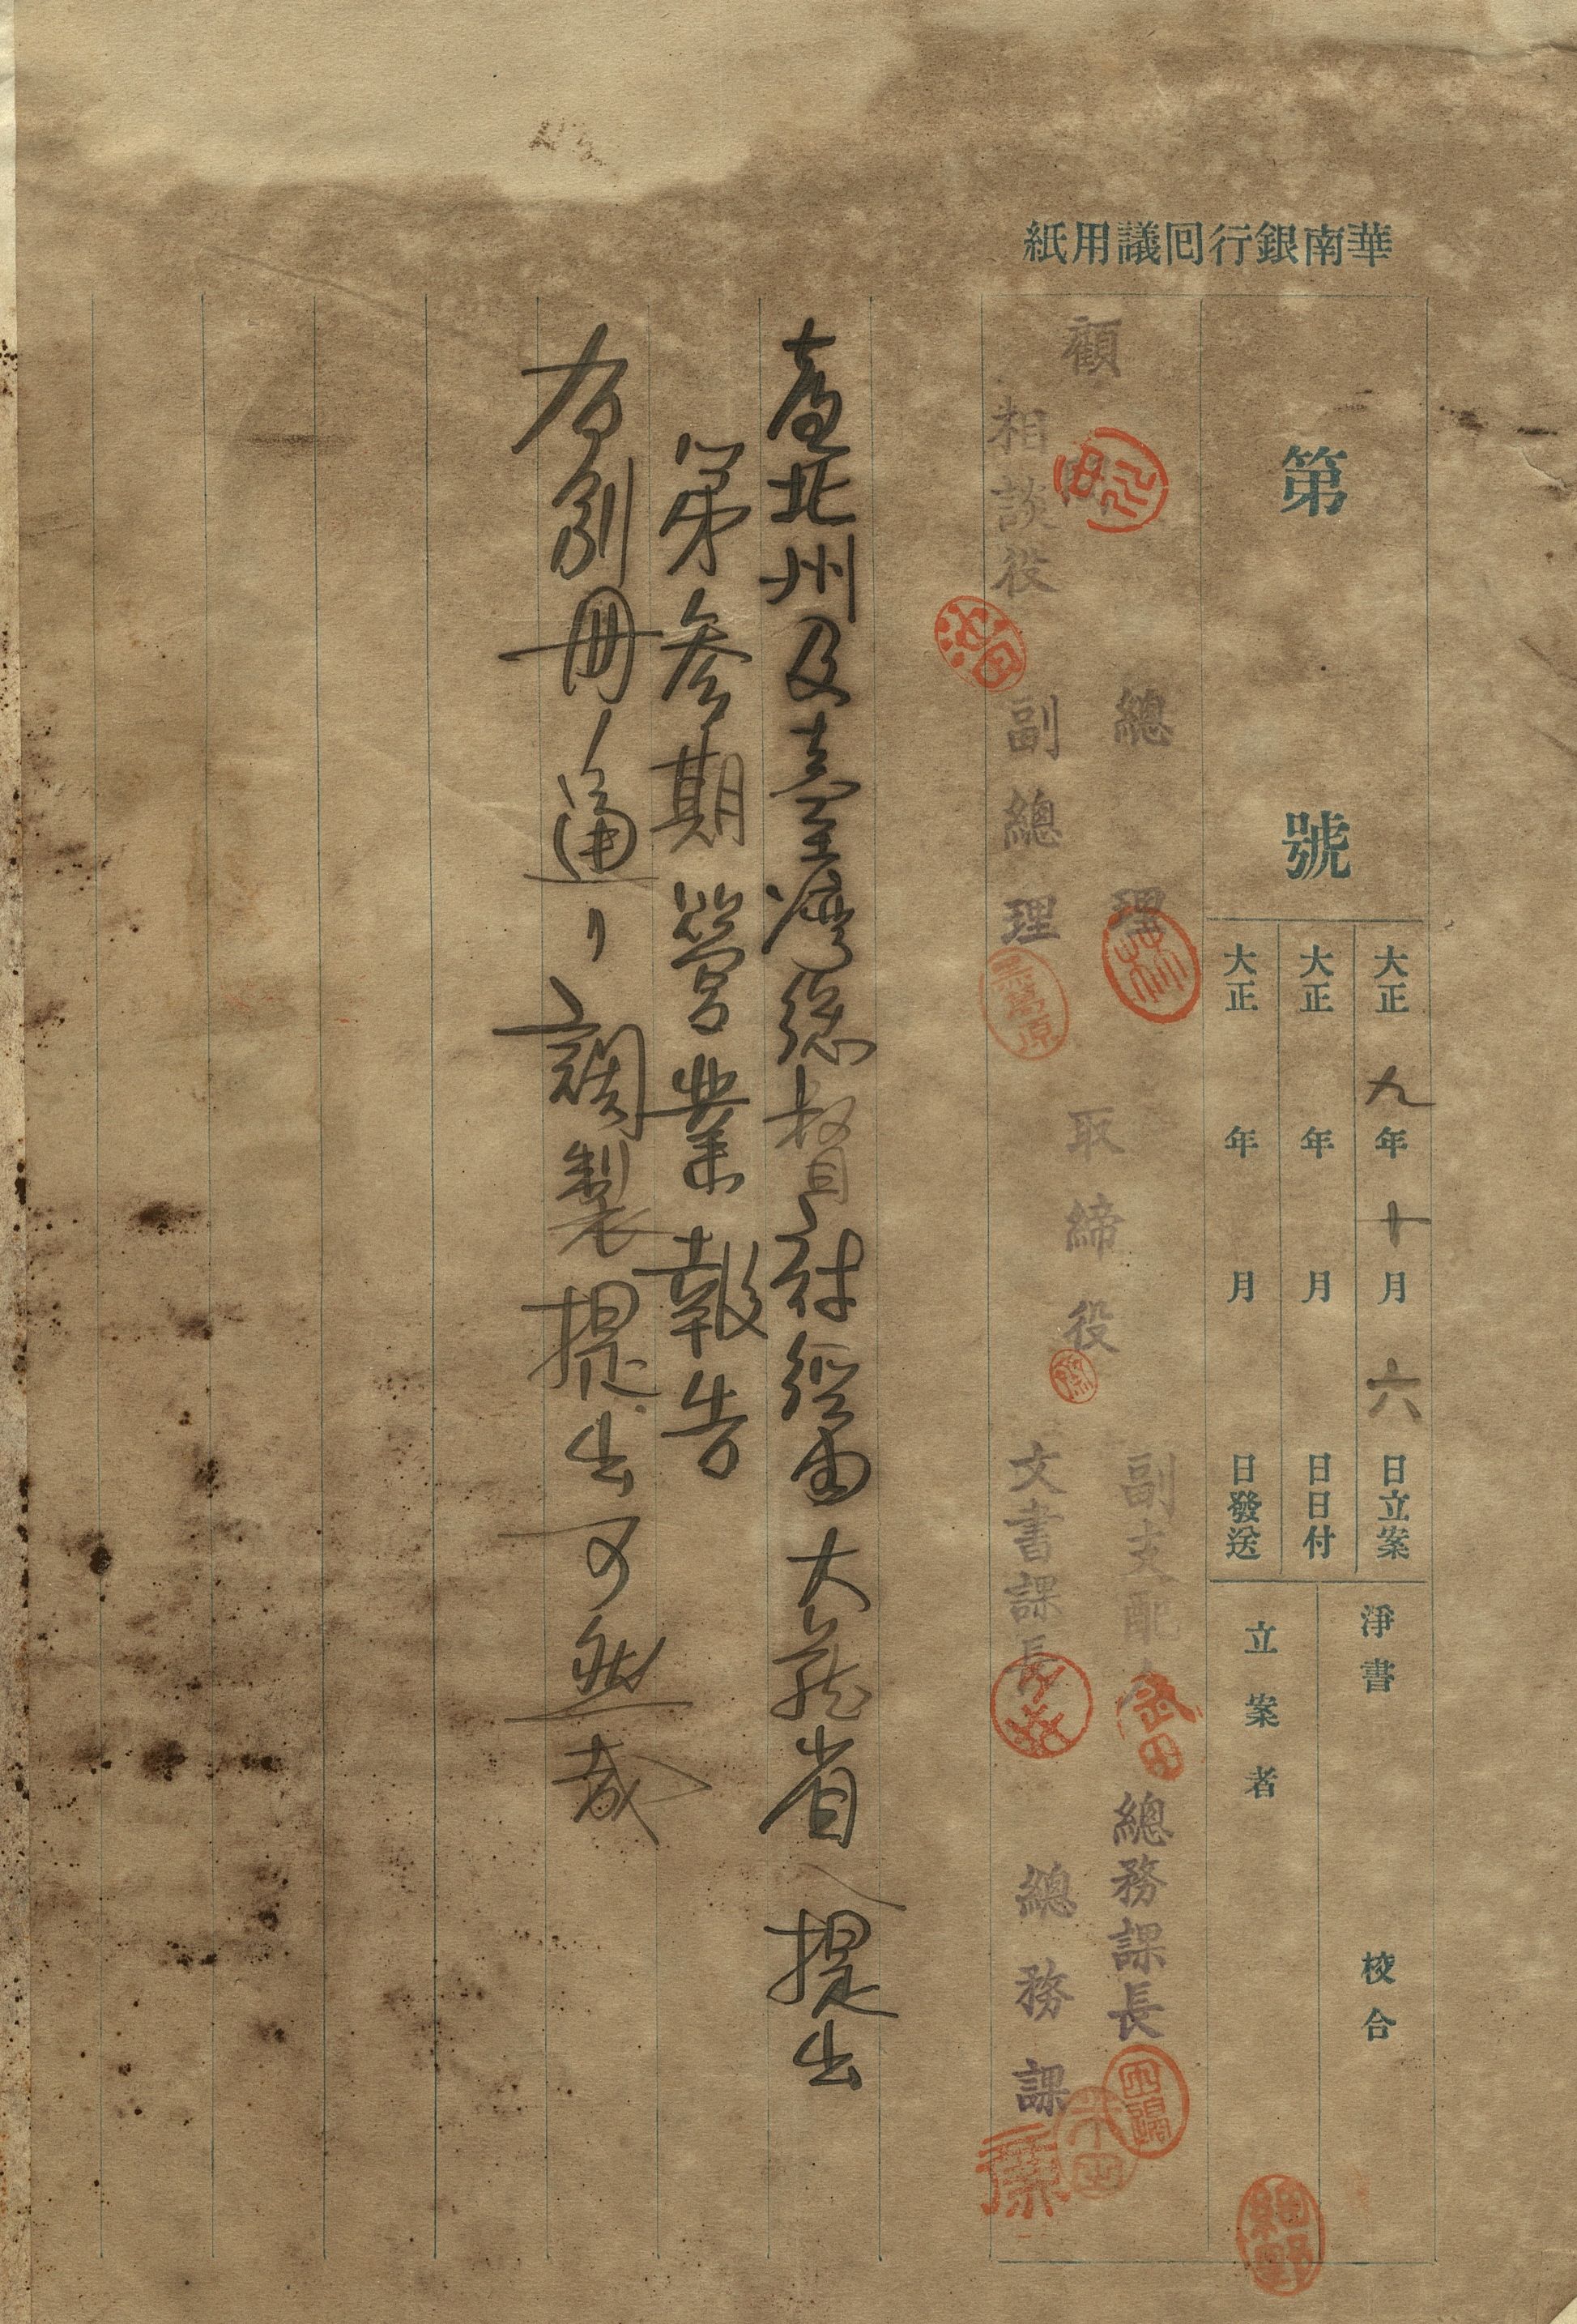 華南銀行囘議用紙
第　號
大正九年十月六日立案
大正　年　月　日日付
大正　年　月　日發送
淨書　校合
立案者
細野
顧問
總理
取締役
副支配人
武田
總務課長
相談役
副總理
文書課長
總務課
臺北州及臺灣總督府經由大藏省ヘ提出
第參期營業報告
右別冊ノ通リ調製提出可然哉